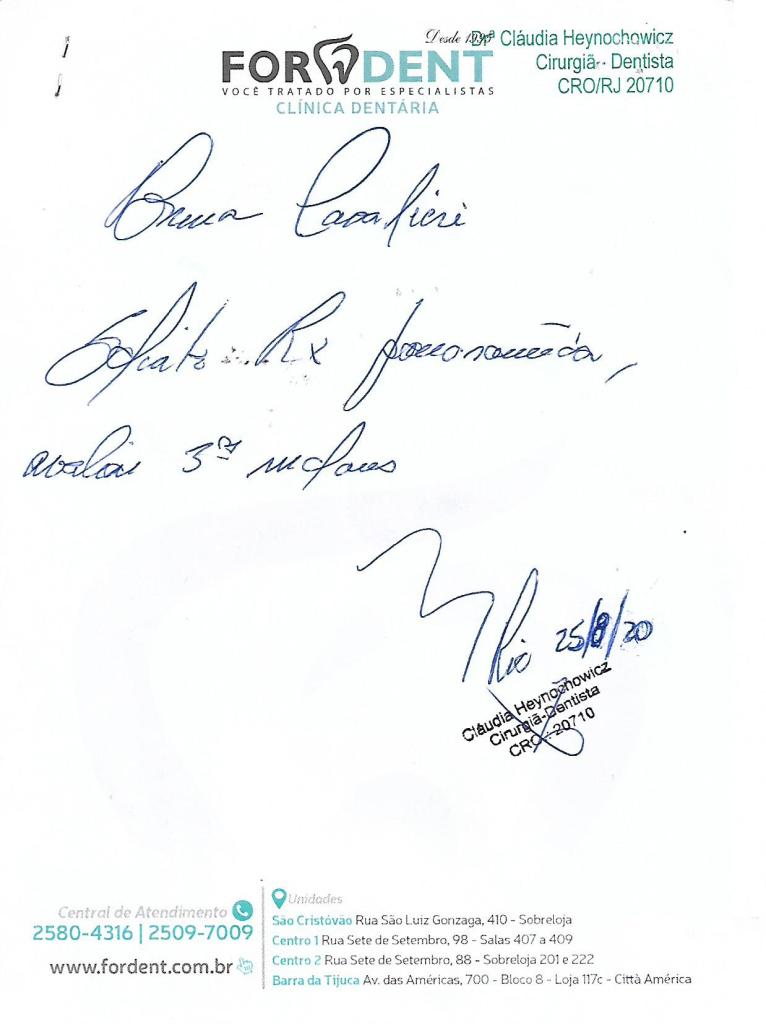 Desde 1990
FORDENT
VOCÊ TRATADO POR ESPECIALISTAS
CLÍNICA DENTÁRIA
Drª Cláudia Heynochowicz
Cirurgiã-Dentista
CRO/RJ 20710
Bruna Cavalieri
Solicito Rx panorâmica,
avaliar 3ºs molares
Rio 25/8/20
Cláudia Heynochowicz
Cirurgiã-Dentista
CRO: 20710
Central de Atendimento
2580-4316 | 2509-7009
www.fordent.com.br
Unidades
São Cristóvão Rua São Luiz Gonzaga, 410 - Sobreloja
Centro 1 Rua Sete de Setembro, 98 - Salas 407 a 409
Centro 2 Rua Sete de Setembro, 88 - Sobreloja 201 e 222
Barra da Tijuca Av. das Américas, 700 - Bloco 8 - Loja 117c - Città América